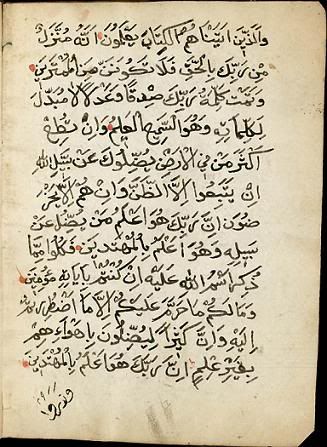 والذين اتيناهم الكتاب يعلمون انه منزل
من ربك بالحق فلا تكونن من الممترين
وتمت كلمة ربك صدقا وعدلا لا مبدل
لكلماته وهو السميع العليم وان تطع
اكثر من في الارض يضلوك عن سبيل الله
ان يتبعوا الا الظن وان هم الا يخر
صون ان ربك هو اعلم من يضل عن
سبيله وهو اعلم بالمهتدين فكلوا مما
ذكر اسم الله عليه ان كنتم باياته مؤمنين
وما لكم ما حرم عليكم الا ما اضطررتم
اليه وان كثيرا ليضلون باهوائهم
بغير علم ان ربك هو اعلم بالمهتدين
وذروا